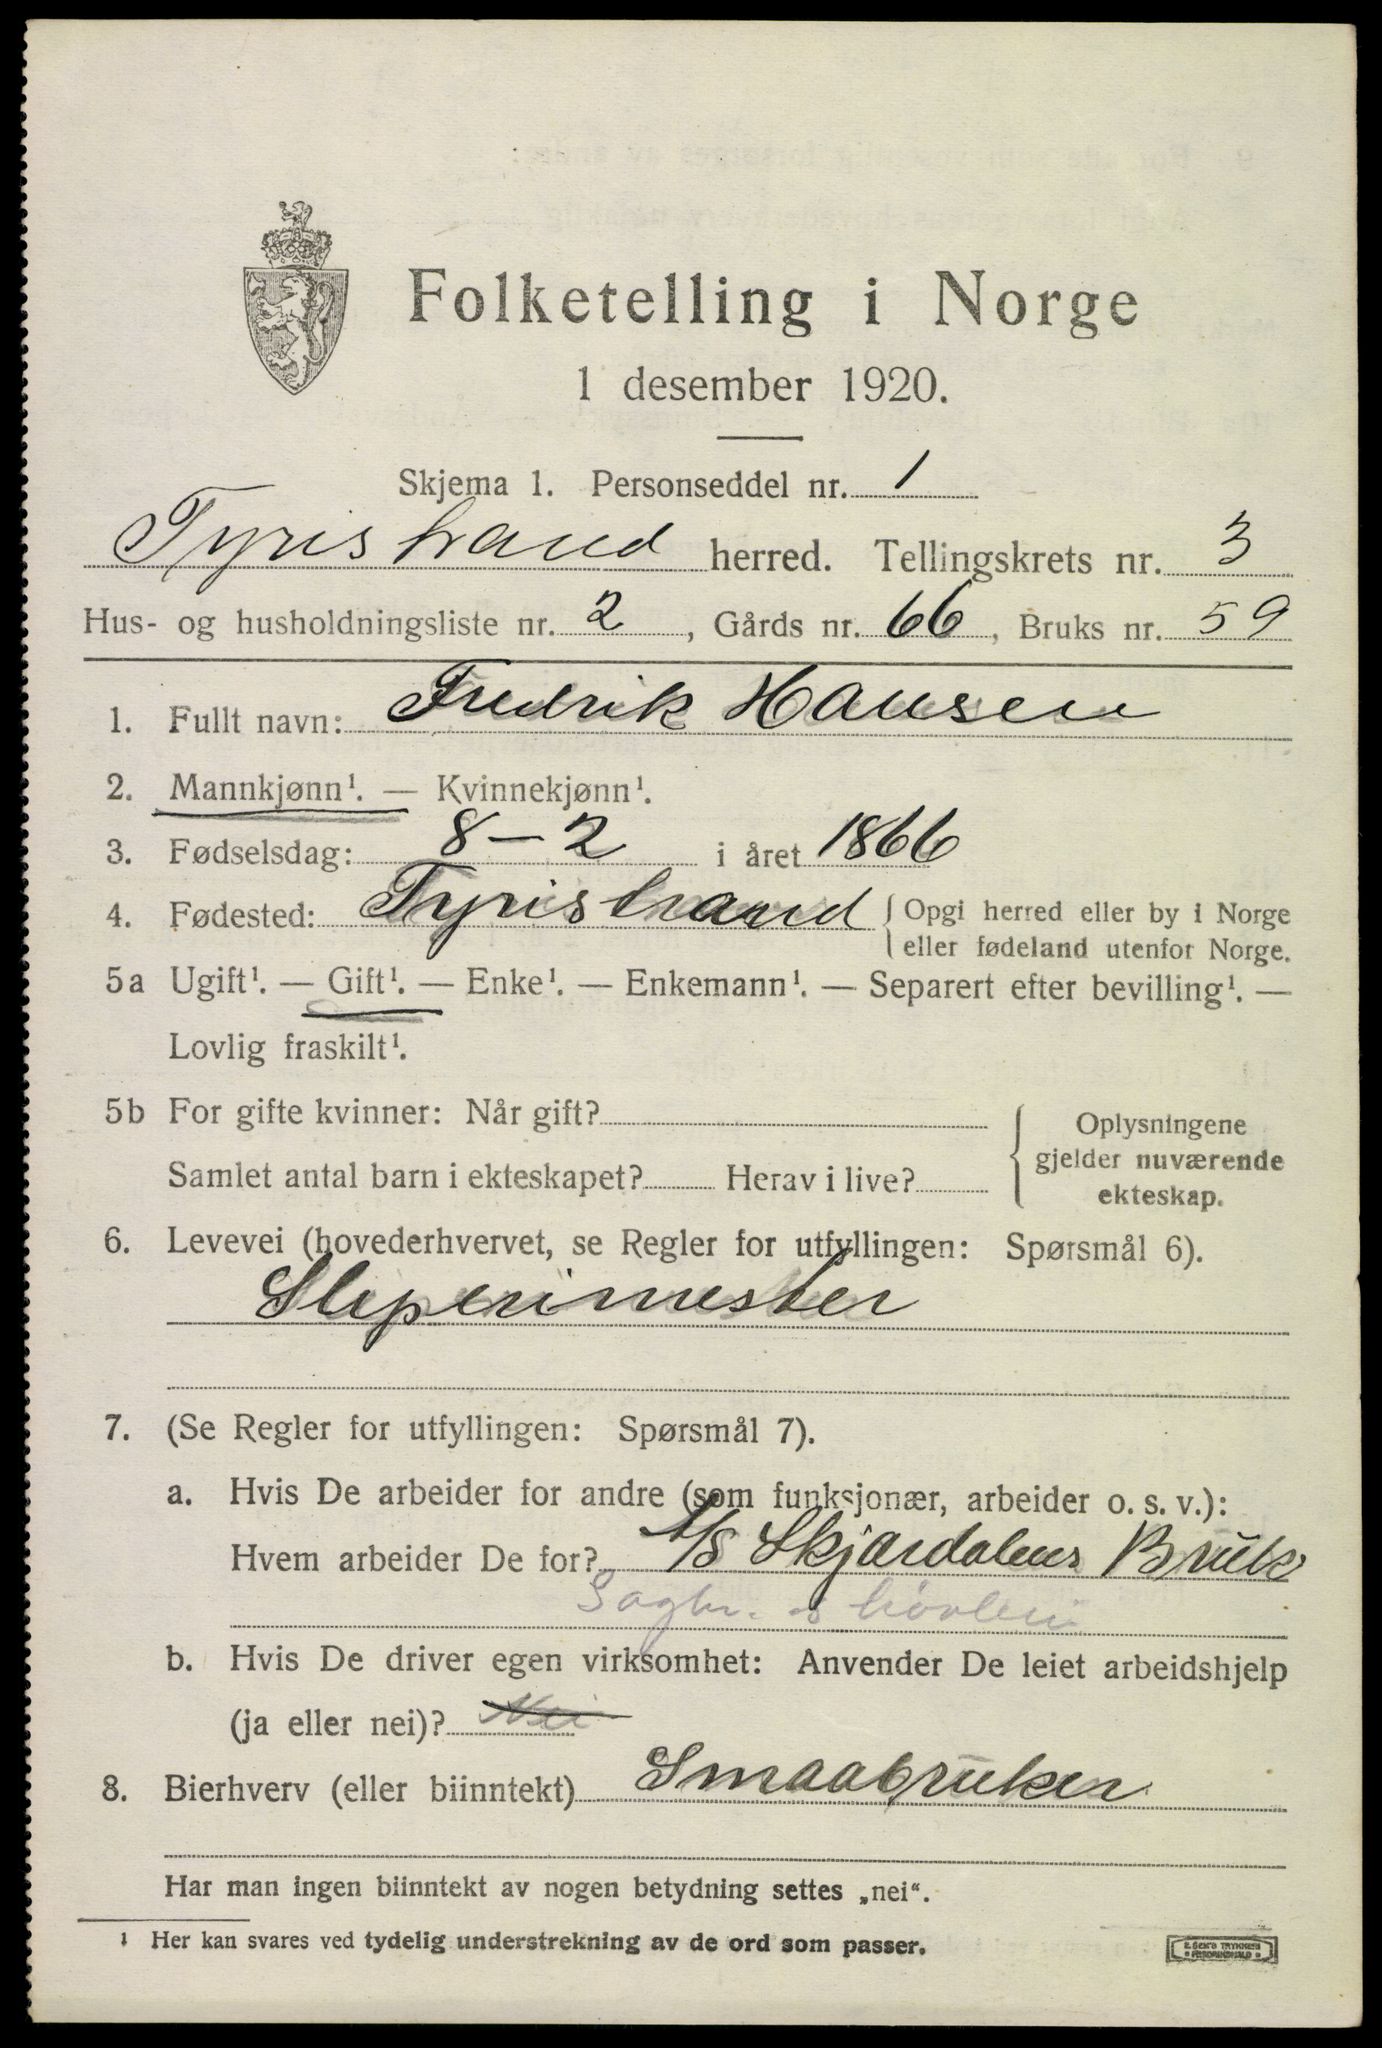 Folketelling i Norge
1 desember 1920.
Skjema 1. Personseddel nr. 1
Tyristrand herred. Tellingskrets nr. 3
Hus- og husholdningsliste nr. 2, Gårds nr. 66, Bruks nr. 59
1. Fullt navn: Fredrik Hansen
2. Mannkjønn¹. — Kvinnekjønn¹.
3. Fødselsdag: 8-2 i året 1866
4. Fødested: Tyristrand { Opgi herred eller by i Norge
eller fødeland utenfor Norge.
5a Ugift¹. — Gift¹. — Enke¹. — Enkemann¹. — Separert efter bevilling¹. —
Lovlig fraskilt¹.
5b For gifte kvinner: Når gift?
Samlet antal barn i ekteskapet? Herav i live?
{ Oplysningene
gjelder nuværende
ekteskap.
6. Levevei (hovederhvervet, se Regler for utfyllingen: Spørsmål 6).
Sliperimester
7. (Se Regler for utfyllingen: Spørsmål 7).
a. Hvis De arbeider for andre (som funksjonær, arbeider o. s. v.):
Hvem arbeider De for? A/S Skjærdalens Bruk
Sagbr. & høvleri
b. Hvis De driver egen virksomhet: Anvender De leiet arbeidshjelp
(ja eller nei)? Nei
8. Bierhverv (eller biinntekt) Smaabruker
Har man ingen biinntekt av nogen betydning settes „nei“.
¹ Her kan svares ved tydelig understrekning av de ord som passer.